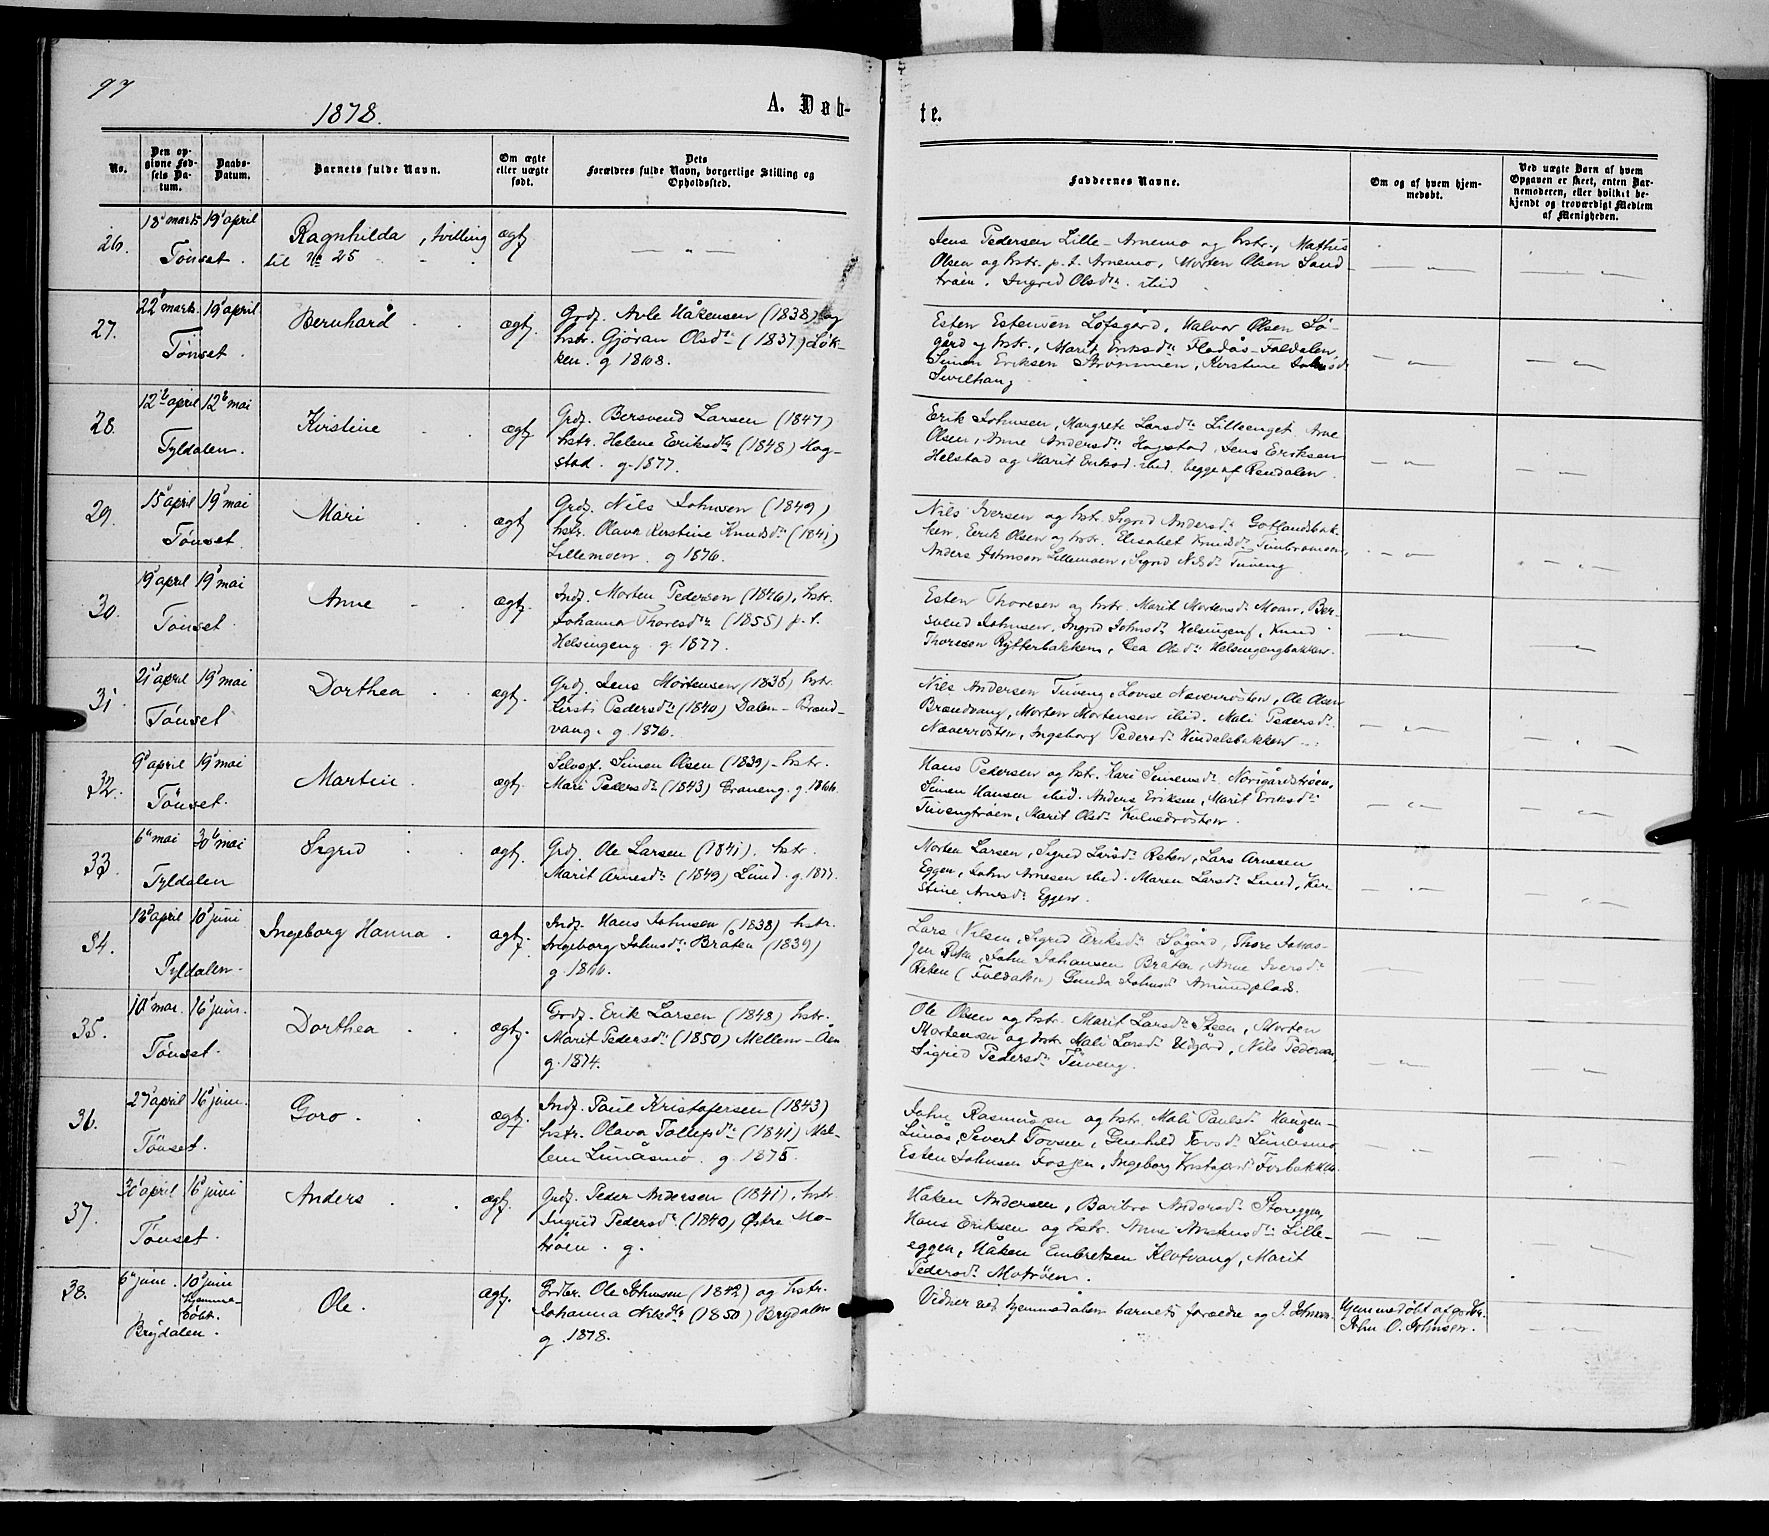 97
1878.
A. Døb-
te.
No.
Den op-
givne Fød-
sels Da-
tum.
Daabs-
Datum.
Barnets fulde Navn.
Om ægte
eller uægte
født.
Dets
Forældres fulde Navn, borgerlige Stilling og
Opholdssted.
Faddernes Navne.
Om og af hvem hjem-
medøbt.
Ved uægte Børn af hvem
Opgaven er skeet, enten Bar-
nemoderen, eller hvilket be-
kjendt og troværdigt Medlem
af Menigheden.
26. 18' marts 19' april Ragnhilda, tvilling ægtf. — " —
Tönset. til No 25
Jens Pedersen Lille-Arnemo og hstr., Mathis
Olsen og hstr. p.t. Arnemo, Morten Olsen Sand-
tröen. Ingrid Olsdtr. ibid
27. 22' marts. 19' april Bernhard ægtf.
Tönset.
Grdj. Avle Håkensen (1838) og
hstr. Gjöran Olsdtr (1837) Løk-
ken. g 1868.
Esten Estensen Løfsgård, Halvor Olsen Sö-
gård og hstr., Marit Eriksdtr Flodås-Foldalen,
Simen Eriksen Strömmen, Kerstine
28. 12te april 12te mai Kirstine ægtf
Tyldalen.
Grdj. Bersvend Larsen (1847)
hstr. Helene Eriksdtr (1848) Hog-
stad. g. 1877.
Erik Johnsen, Margrete Larsdtr Lilleenget. Arne
Olsen, Anne Andersdtr Hogstad, Jens Eriksen
Helstad og Marit Eriksd. ibid. begge af Rendalen.
29. 15' april 19' mai Mari ægtf
Tönset.
Grdj. Nils Johnsen (1849)
hstr. Olava Kerstine Knudsdtr (1841)
Lillemoen. g 1876.
Nils Iversen og hstr. Sigrid Andersdtr Gotlandsbak-
ken, Eerik Olsen og hstr. Elisabet Knudsdtr
Anders Johnson Lillemoen, Sigrid Nilsdtr Tuveng
30. 19' april 19' mai Anne ægtf.
Tönset.
Indj. Morten Pedersen (1846), hstr.
Johanna Thoresdtr (1855) p.t.
Helsingeng g. 1877.
Esten Thoresen og hstr. Marit Mortensdtr Moan, Ber-
svend Johnsen, Ingrid Johnsdtr Helsingeng, Knud
Thoresen Rytterbakken, Lea Olsdtr Helsingengbakken.
31. 21' april 19' mai Dorthea ægtf.
Tönset.
Grdj. Jens Mortensen (1838) hstr.
Kirsti Pedersdtr (1840) Dalen-Brænd-
vang. g. 1876.
Nils Andersen Tuveng, Lovise Næverrösten, Ole Olsen
Brændvang, Morten Mortensen ibid. Mali Pedersdtr
Næverrösten, Ingeborg Pedersdtr
32. 9' april 19' mai Martin ægtf.
Tönset.
Selvsf. Simen Olsen (1839) - hstr.
Mari Pedersdtr (1843) Graneng. g. 1866.
Hans Pedersen og hstr. Kari Simensdtr Norrgårdströen,
Simen Hansen ibid. Anders Eriksen, Marit Eriksdtr
Tuvengtröen, Marit Olsdtr
33. 6te mai 30te mai Sigrid ægtf.
Tyldalen
Grdj. Ole Larsen (1841). hstr.
Marit Arnesdtr (1849) Lund. g. 1877.
Morten Larsen, Sigrid Larsdtr Reten, Lars Arnesen
Eggen, John Arnesen ibid. Maren Larsdtr Lund, Ker-
stine Arnesdtr Eggen.
34. 18' april 10' juni Ingeborg Hanna. ægtf.
Tyldalen.
Indj. Hans Johnsen (1838) hstr.
Ingeborg Johnsdtr Bråten (1839)
g. 1866.
Lars Nilsen, Sigrid Eriksdtr Sögård, Thore
John Johansen Bråten, Anne Iversdtr
Reten (Foldalen) Gunda Johnsdtr Amundplads.
35. 10' mai. 16' juni. Dorthea ægtf.
Tönset.
Grdj. Erik Larsen (1848) hstr.
Marit Pedersdtr (1850) Mellem-Åen
g. 1874.
Ole Olsen og hstr. Marit Larsdtr Steen, Morten
Mortensen og hstr. Mali Larsdtr Udgård, Nils Pedersen
Sigrid Pedersdtr Tuveng.
36. 27' april 16' juni. Goro. ægtf.
Tönset.
Indj. Paul Kristofersen (1843)
hstr. Olava Tollefsdtr (1841) Mel-
lem Lunåsmo. g. 1875.
John Rasmussen og hstr. Mali Paulsdtr Haugen-
Lunås, Sivert Tovsen, Gunhild Tovsdtr Lunåsmo
Esten Johnsen Fosjen, Ingeborg Kristofersdtr Fosbakken.
37. 30' april 16' juni Anders ægtf.
Tönset.
Grdj. Peder Andersen (1841), hstr.
Ingrid Pedersdtr (1840) Østre Mo-
tröen. g.
Haken Andersen, Barbro Andersdtr Storeggen,
Hans Eriksen og hstr. Anne Lille-
eggen, Håken Embretsen Klofvang, Marit
Pedersdtr Motröen.
38. 6te juni. 10' juni Ole. ægtf.
hjemme-
døbt.
Brydalen.
Grdbr. Ole Johnsen (1842) og hstr.
Johanna Nilsdtr (1850) Brydalen
g. 1878.
Vidner ved hjemmedåben barnets forældre og J. Johnsen
hjemmedøbt af grdbr.
John O. Johnsen.